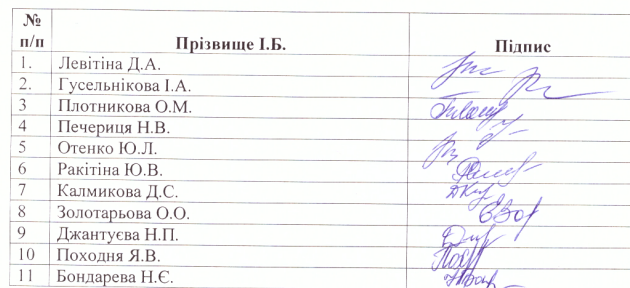 № п/п Прізвище І.Б. Підпис
1. Левітіна Д.А.
2. Гусельнікова І.А.
3 Плотникова О.М.
4 Печериця Н.В.
5 Отенко Ю.Л.
6 Ракітіна Ю.В.
7 Калмикова Д.С.
8 Золотарьова О.О.
9 Джантуєва Н.П.
10 Походня Я.В.
11 Бондарева Н.Є.